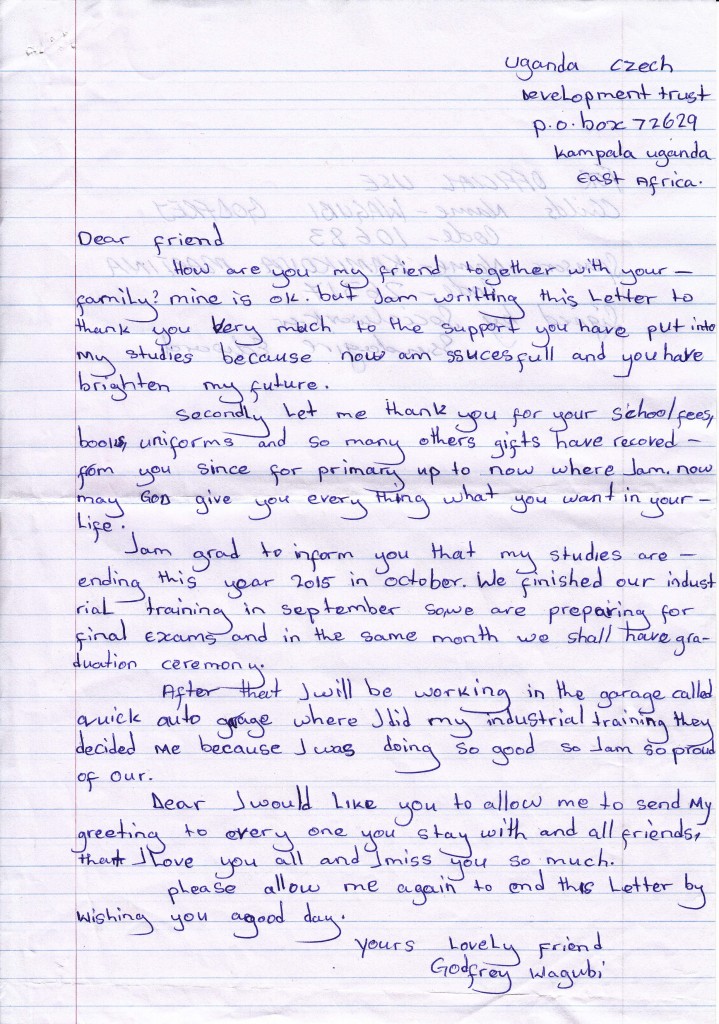 Uganda Czech
Development trust
p.o.box 72629
Kampala uganda
East Africa.
Dear friend
How are you my friend together with your –
family? mine is ok. but Jam writting this Letter to
thank you Very much to the support you have put into
My studies because now am ssucesfull and you have
brighten my future.
Secondly Let me thank you for your school fees,
books, uniforms and so many others gifts have recoved –
fom you since for primary up to now where Jam. now
may GOD give you every thing what you want in your –
Life.
Jam grad to inform you that my studies are –
ending this year 2015 in october. We finished our indust
rial training in september so,we are preparing for
final exams and in the same month we shall have gra-
duation ceremony.
After that I will be working in the garage called
quick auto garage where I did my industrial training they
decided me because I was doing so good so Jam so proud
of our.
Dear I would Like you to allow me to send My
greeting to every one you stay with and all friends,
that I Love you all and I miss you so much.
please allow me again to end this Letter by
wishing you agood day.
yours Lovely friend
Godfrey Wagubi
OFFICIAL USE
Childs Name - WAGUBI GODFREY
Code - 10683